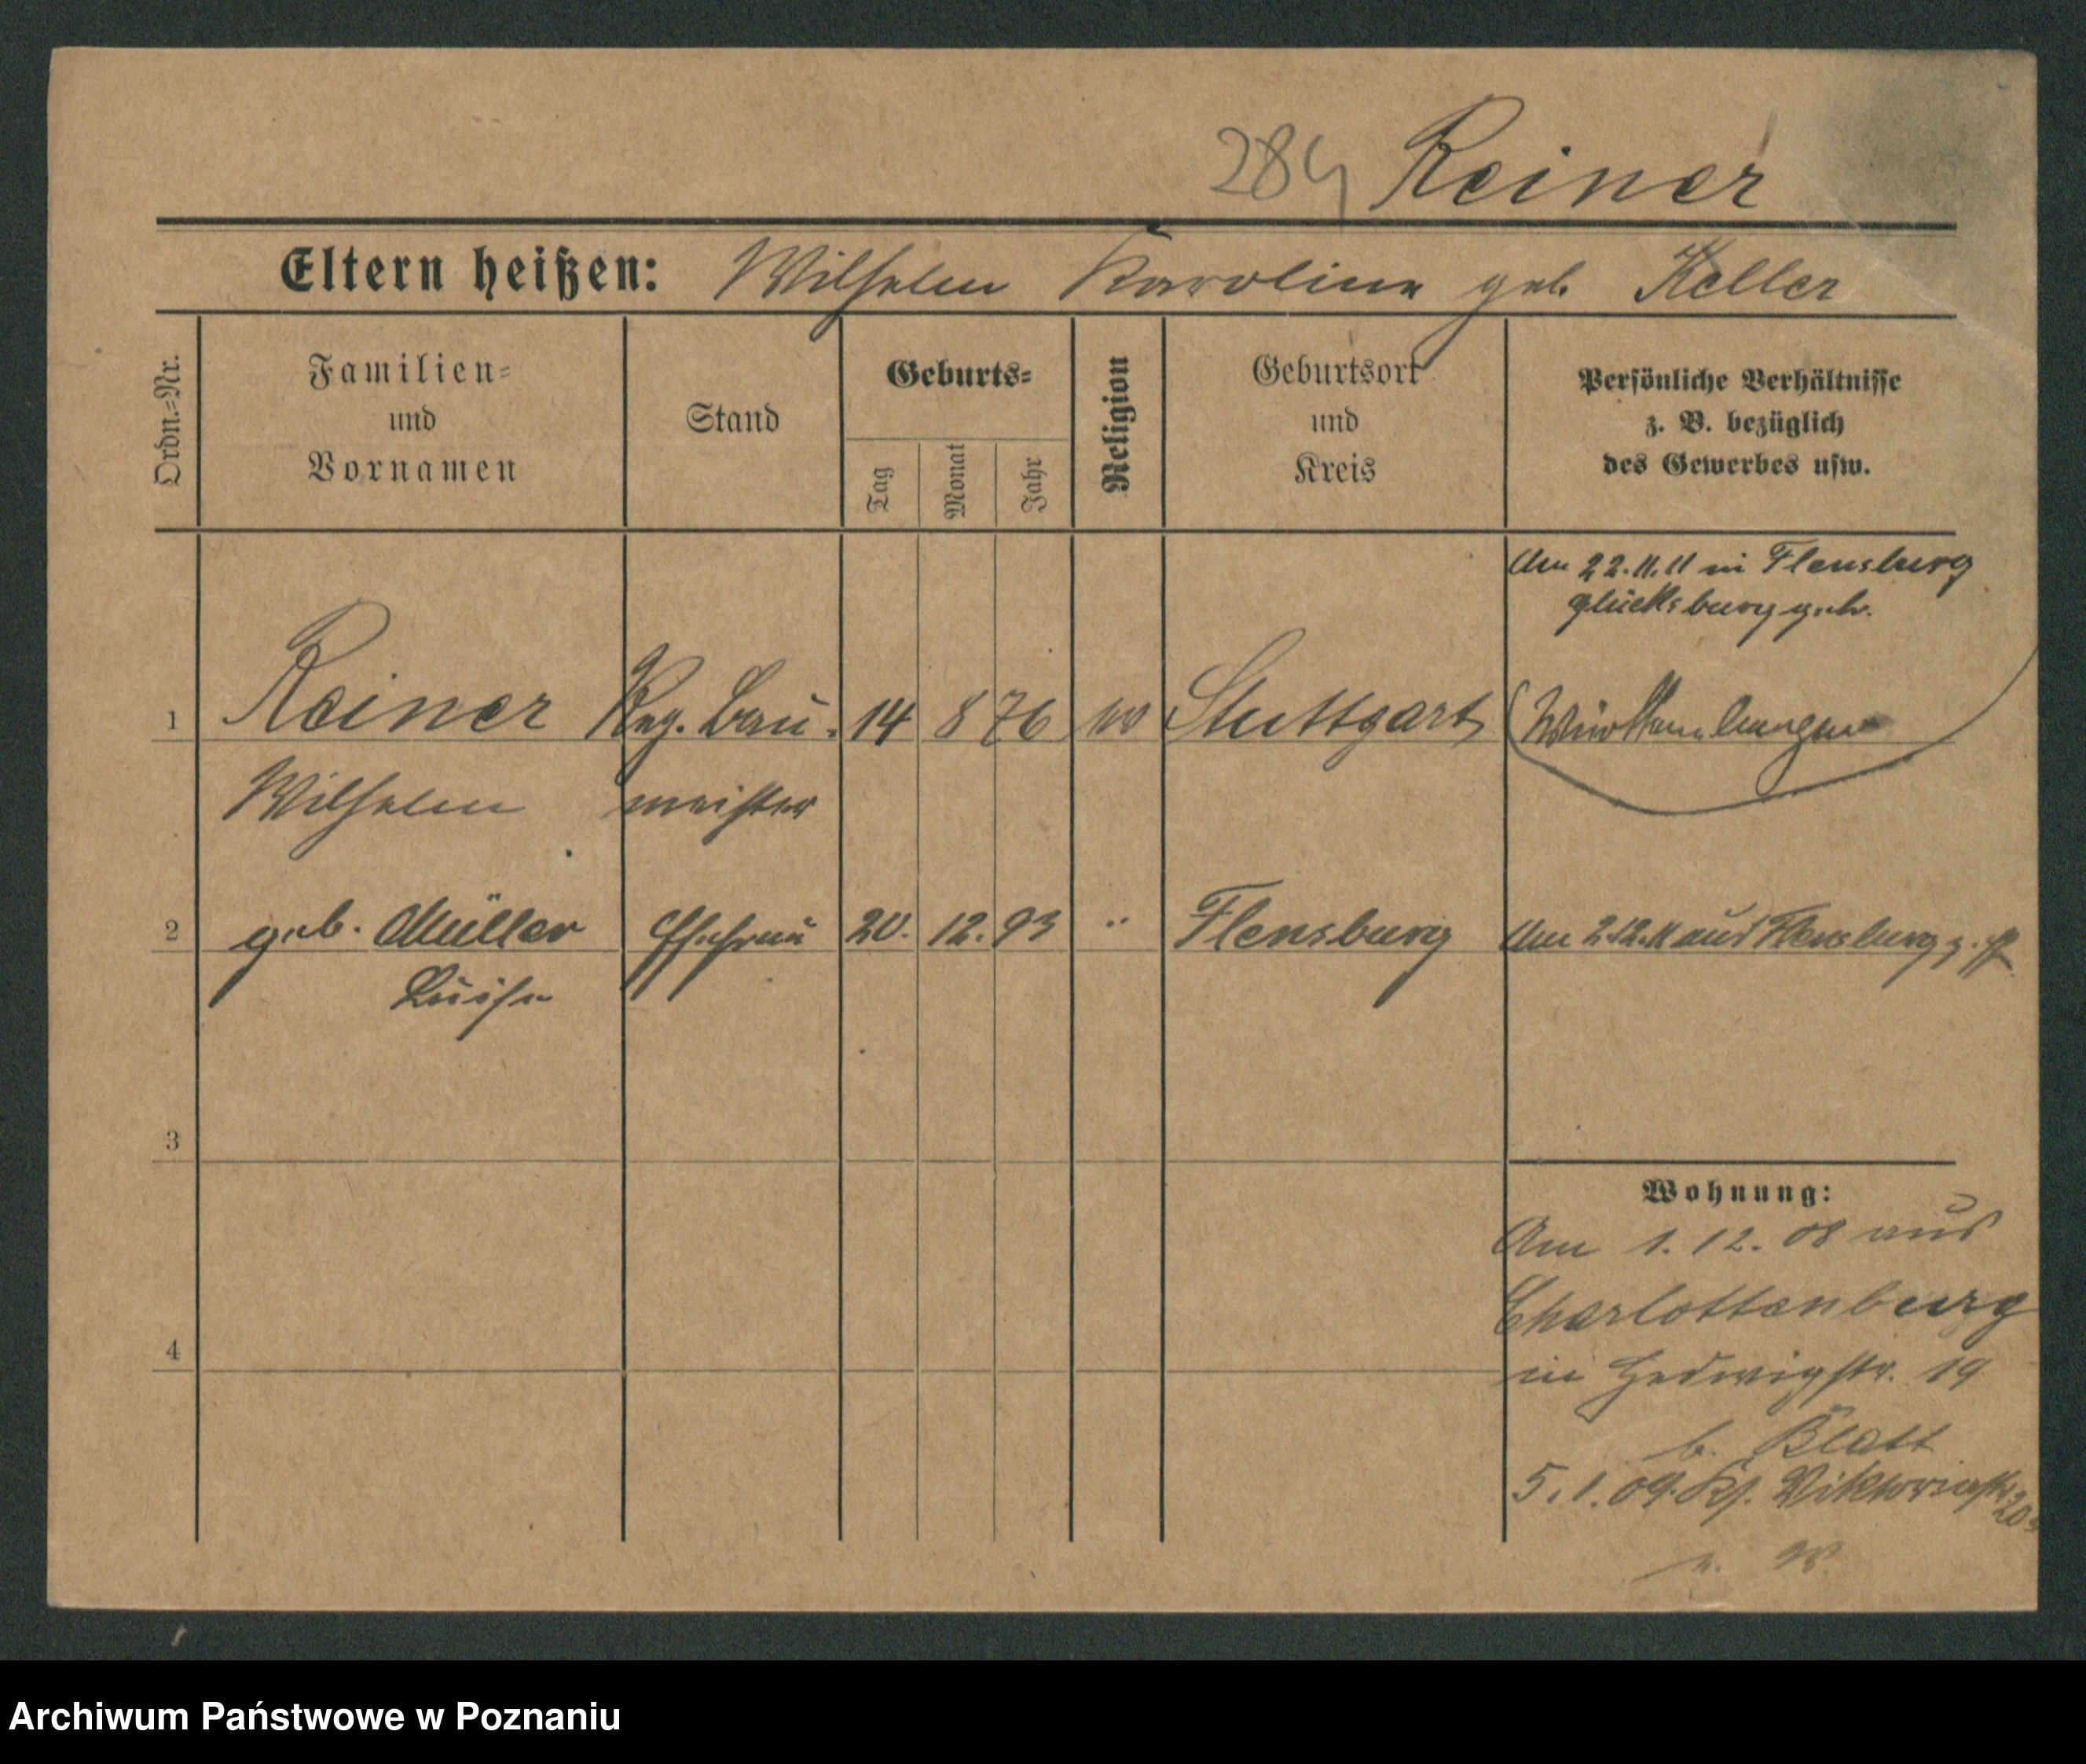 284 Reiner
Eltern heißen: Wilhelm Karoline geb. Keller
Ordn.=Nr.
Familien=
und
Vornamen
Stand
Geburts=
Tag
Monat
Jahr
Religion
Geburtsort
und
Kreis
Persönliche Verhältnisse
z. B. bezüglich
des Gewerbes usw.
Am 22.11.11 in Flensburg
glücksburg geh.
1 Reiner Reg. Bau- 14 8 76 Stuttgart (Württemberger
Wilhelm meister
2 geb. Müller Ehefrau 20. 12. 93 " Flensburg Am 2.12.11 aus Flensburg
Luise
3
Wohnung:
Am 1. 12. 08 aus
Charlottenburg
4
in Hedwigstr. 19
b. Blatt
5.1.09. Viktoriastr. 20
Archiwum Państwowe w Poznaniu